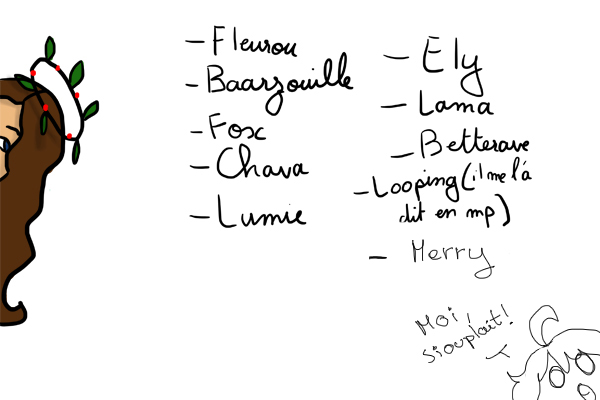 - Fleurou
- Baarzouille
- Fox
- Chava
- Lumie
- Ely
- Lama
- Betterave
- Looping (il me l'à
dit en mp)
- Merry
Moi,
siouplait!